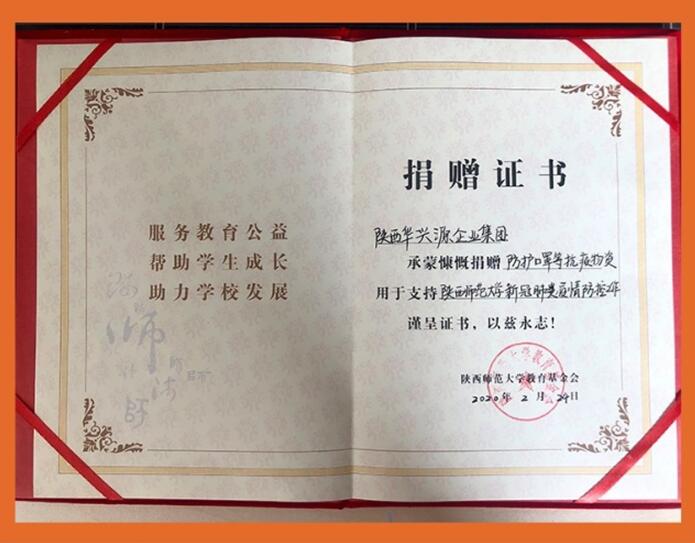 服务教育公益
帮助学生成长
助力学校发展
捐赠证书
陕西华兴源企业集团
承蒙慷慨捐赠 防护口罩等抗疫物资
用于支持 陕西师范大学新冠肺炎疫情防控工作
谨呈证书，以兹永志！
陕西师范大学教育基金会
2020年 2 月 29日